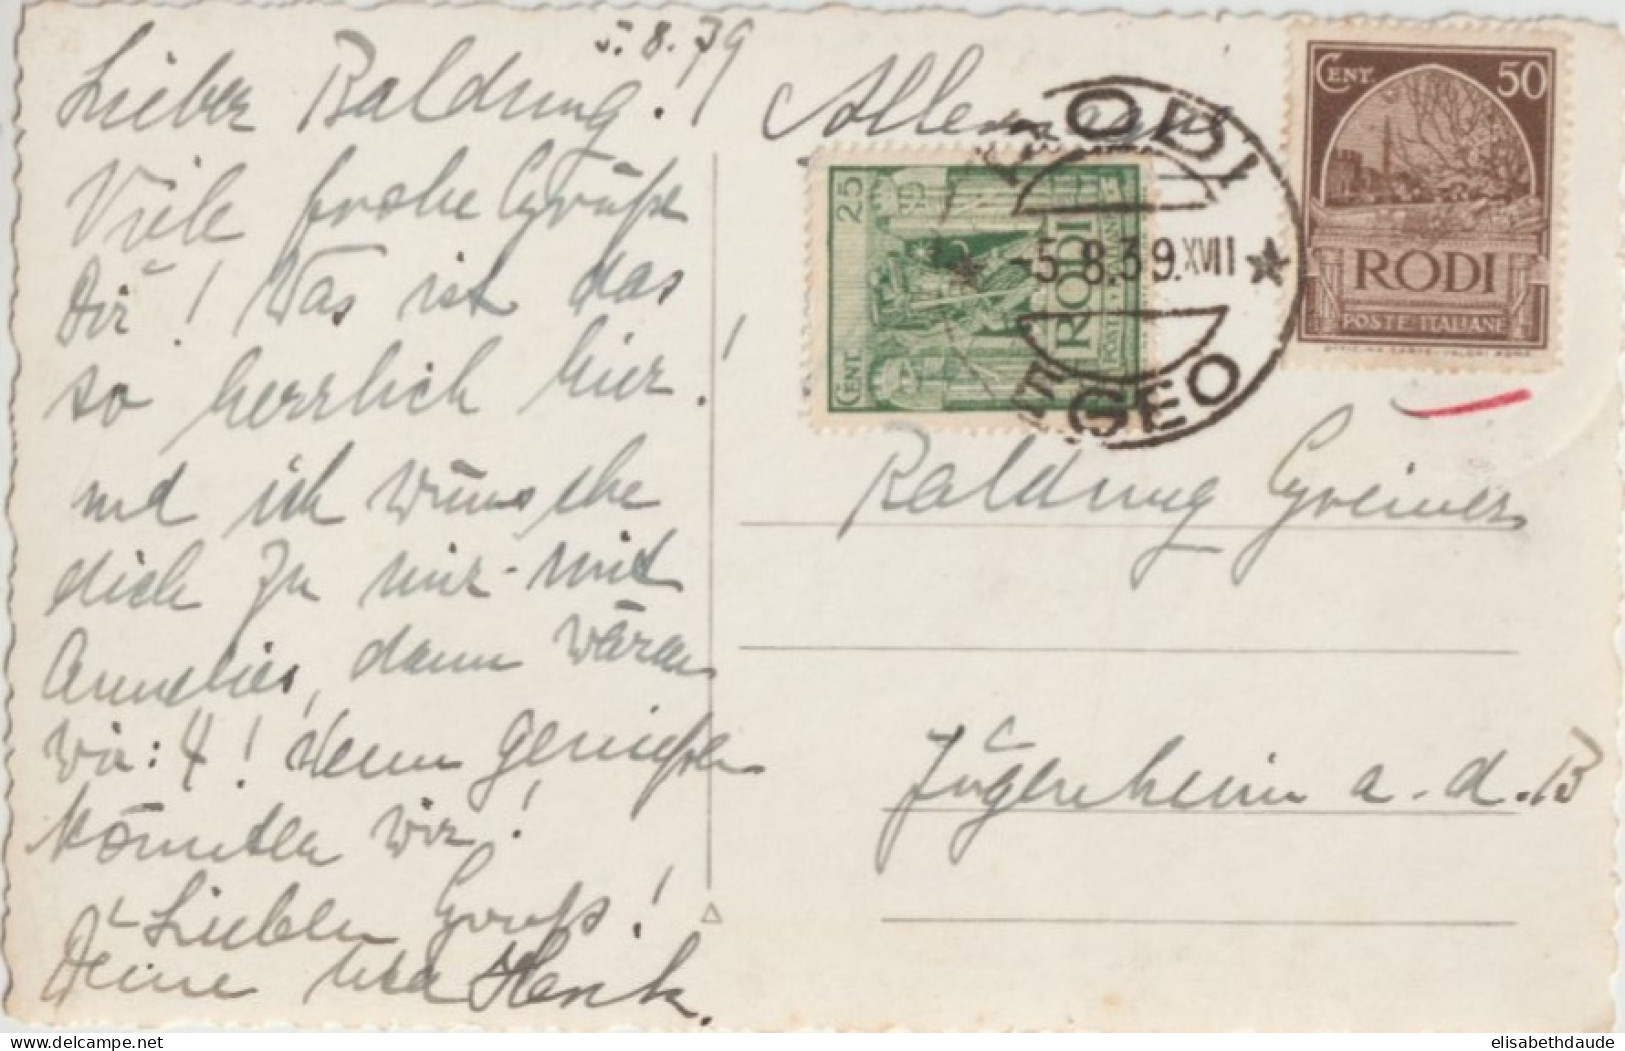 5.8.39
Lieber Baldung!
Viele frohe Grüße
Dir! Was ist das
so herrlich hier!
und ich wünsche
dich zu mir - mit
Annelies, dann wären
wir: 4! denn genießen
könnten wir!
Lieben Gruß!
Deine
Allemagne
CENT. 50
RODI
POSTE ITALIANE
OFFICINA CARTE-VALORI ROMA
CENT 25
RODI
RODI
-5.8.39.XVII
EGEO
Baldung Greiner
Jugenheim a.d.B
delcampe.net
elisabethdaude